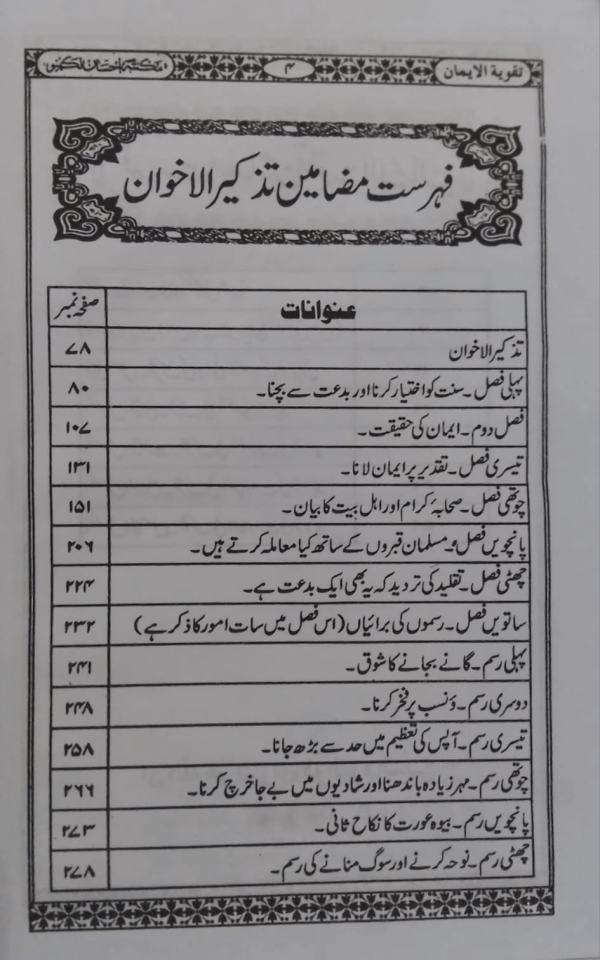 تقویة الایمان ۴ مکتبہ احسان لکھنؤ
فہرست مضامین تذکیر الاخوان
عنوانات صفحہ نمبر
تذکیر الاخوان ۷۸
پہلی فصل۔ سنت کو اختیار کرنا اور بدعت سے بچنا۔ ۸۰
فصل دوم۔ ایمان کی حقیقت۔ ۱۰۷
تیسری فصل۔ تقدیر پر ایمان لانا۔ ۱۳۱
چوتھی فصل۔ صحابۂ کرام اور اہل بیت کا بیان۔ ۱۵۱
پانچویں فصل۔ مسلمان قبروں کے ساتھ کیا معاملہ کرتے ہیں۔ ۲۰۶
چھٹی فصل۔ تقلید کی تردید کہ یہ بھی ایک بدعت ہے۔ ۲۲۴
ساتویں فصل۔ رسموں کی برائیاں (اس فصل میں سات امور کا ذکر ہے) ۲۳۲
پہلی رسم۔ گانے بجانے کا شوق۔ ۲۴۱
دوسری رسم۔ ونسب پر فخر کرنا۔ ۲۴۸
تیسری رسم۔ آپس کی تعظیم میں حد سے بڑھ جانا۔ ۲۵۸
چوتھی رسم۔ مہر زیادہ باندھنا اور شادیوں میں بے جا خرچ کرنا۔ ۲۶۶
پانچویں رسم۔ بیوہ عورت کا نکاح ثانی۔ ۲۷۳
چھٹی رسم۔ نوحہ کرنے اور سوگ منانے کی رسم۔ ۲۷۸